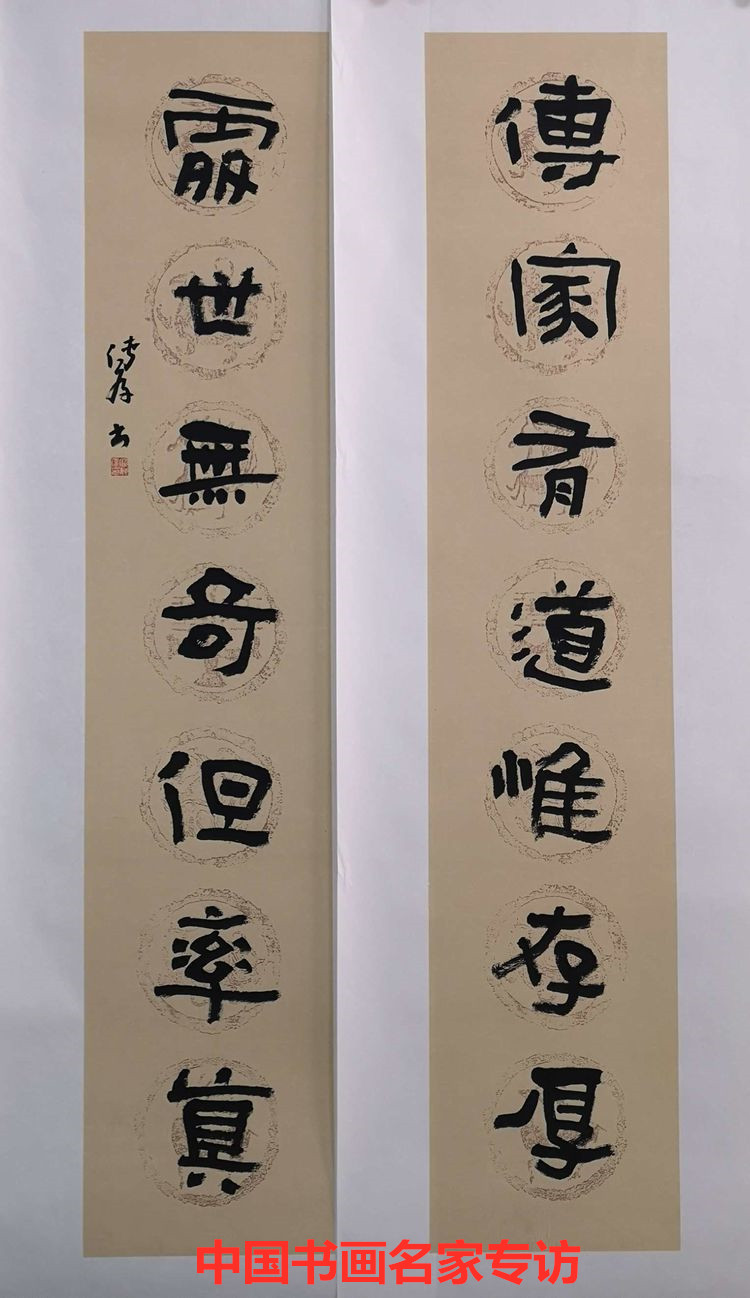 傳家有道惟存厚
處世無奇但率真
书
中国书画名家专访